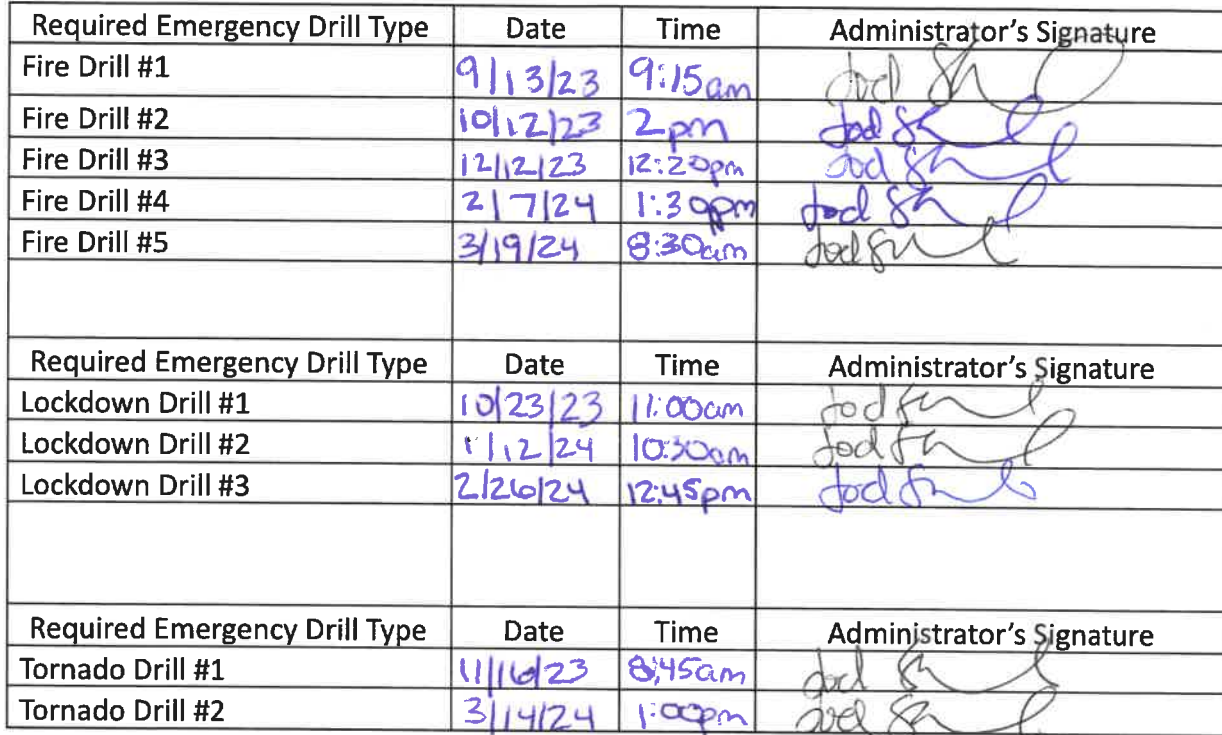 Required Emergency Drill Type Date Time Administrator's Signature
Fire Drill #1 9/13/23 9:15am
Fire Drill #2 10/12/23 2pm
Fire Drill #3 12/12/23 12:20pm
Fire Drill #4 2/7/24 1:30pm
Fire Drill #5 3/19/24 8:30am
Required Emergency Drill Type Date Time Administrator's Signature
Lockdown Drill #1 10/23/23 11:00am
Lockdown Drill #2 1/12/24 10:30am
Lockdown Drill #3 2/26/24 12:45pm
Required Emergency Drill Type Date Time Administrator's Signature
Tornado Drill #1 11/16/23 8:45am
Tornado Drill #2 3/14/24 1:00pm